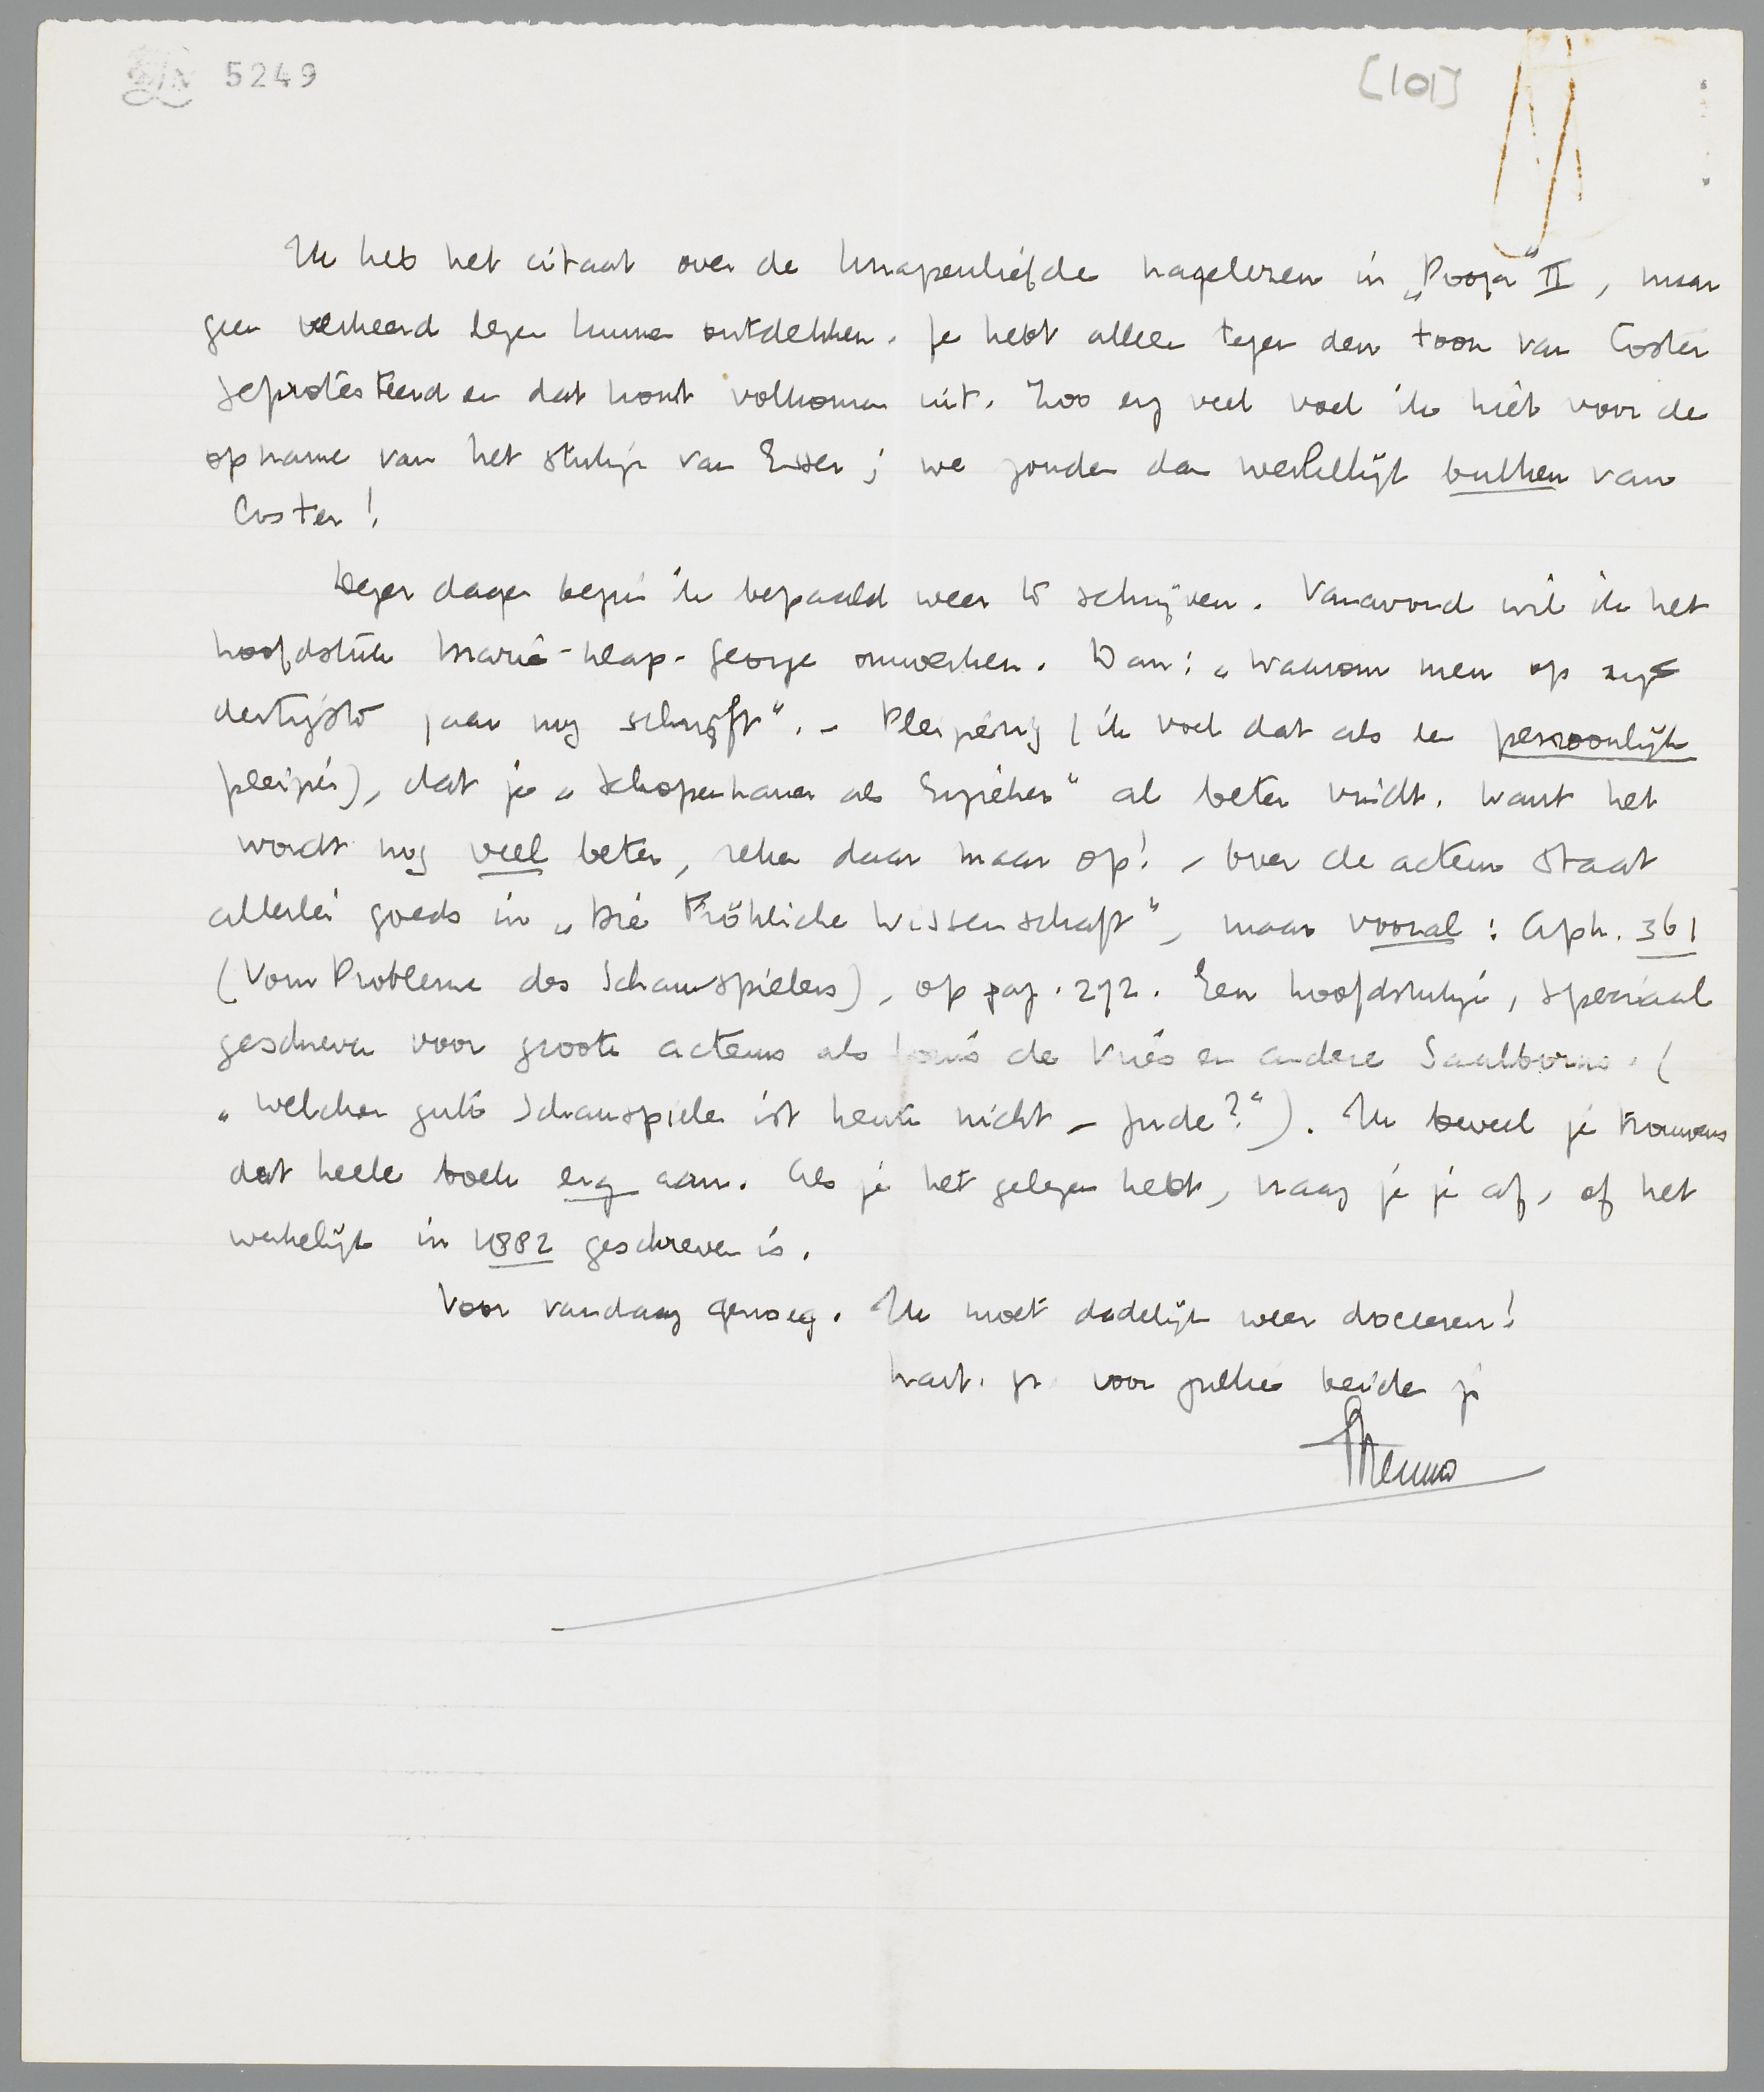 5249
[101]
Ik heb het citaat over de knapenliefde nagelezen in „Proza" II, maar
geen verkeerd lezen kunnen ontdekken. Je hebt alleen tegen den toon van Coster
geprotesteerd en dat komt volkomen uit. Zoo erg veel voel ik niet voor de
opname van het stukje van Esser; we zouden dan werkelijk bulken van
Coster!
Dezer dagen begin ik bepaald weer te schrijven. Vanavond wil ik het
hoofdstuk Marie - George omwerken. Dan: „Waarom men op zijn
dertigste jaar nog schrijft". – Pleizierig (ik voel dat als een persoonlijk
pleizier), dat je „Schopenhauer als Erzieher" al beter vindt. Want het
wordt nog veel beter, reken daar maar op! – Over de acteurs staat
allerlei goeds in „Die Fröhliche Wissenschaft", maar vooral: Aph. 361
(Vom Probleme des Schauspielers), op pag. 292. Een hoofdstukje, speciaal
geschreven voor groote acteurs als Louis de Vries en andere Saalborns. (
„Welcher gute Schauspieler ist heute nicht – Jude?"). Ik beveel je trouwens
dat heele boek erg aan. Als je het gelezen hebt, vraag je je af, of het
werkelijk in 1882 geschreven is.
Voor vandaag genoeg. Ik moet dadelijk weer doceeren!
Hart. gr. voor jullie beiden je
Menno